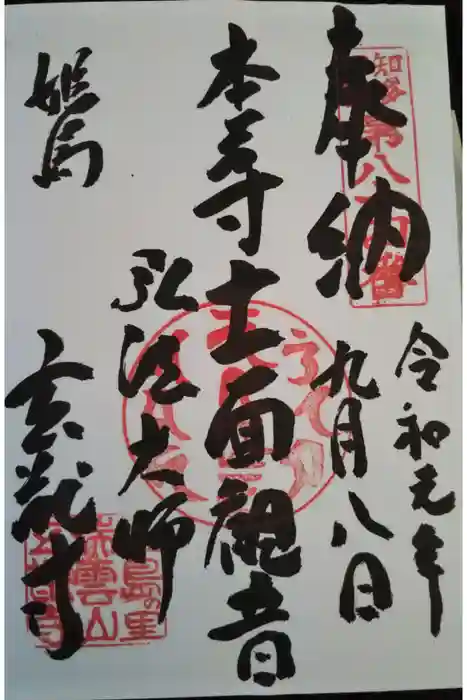 知多第八十四番
奉納
令和元年
九月八日
本尊十一面観音
弘法大師
姫島
玄猷寺
姫島の里
瑞雲山
玄猷寺